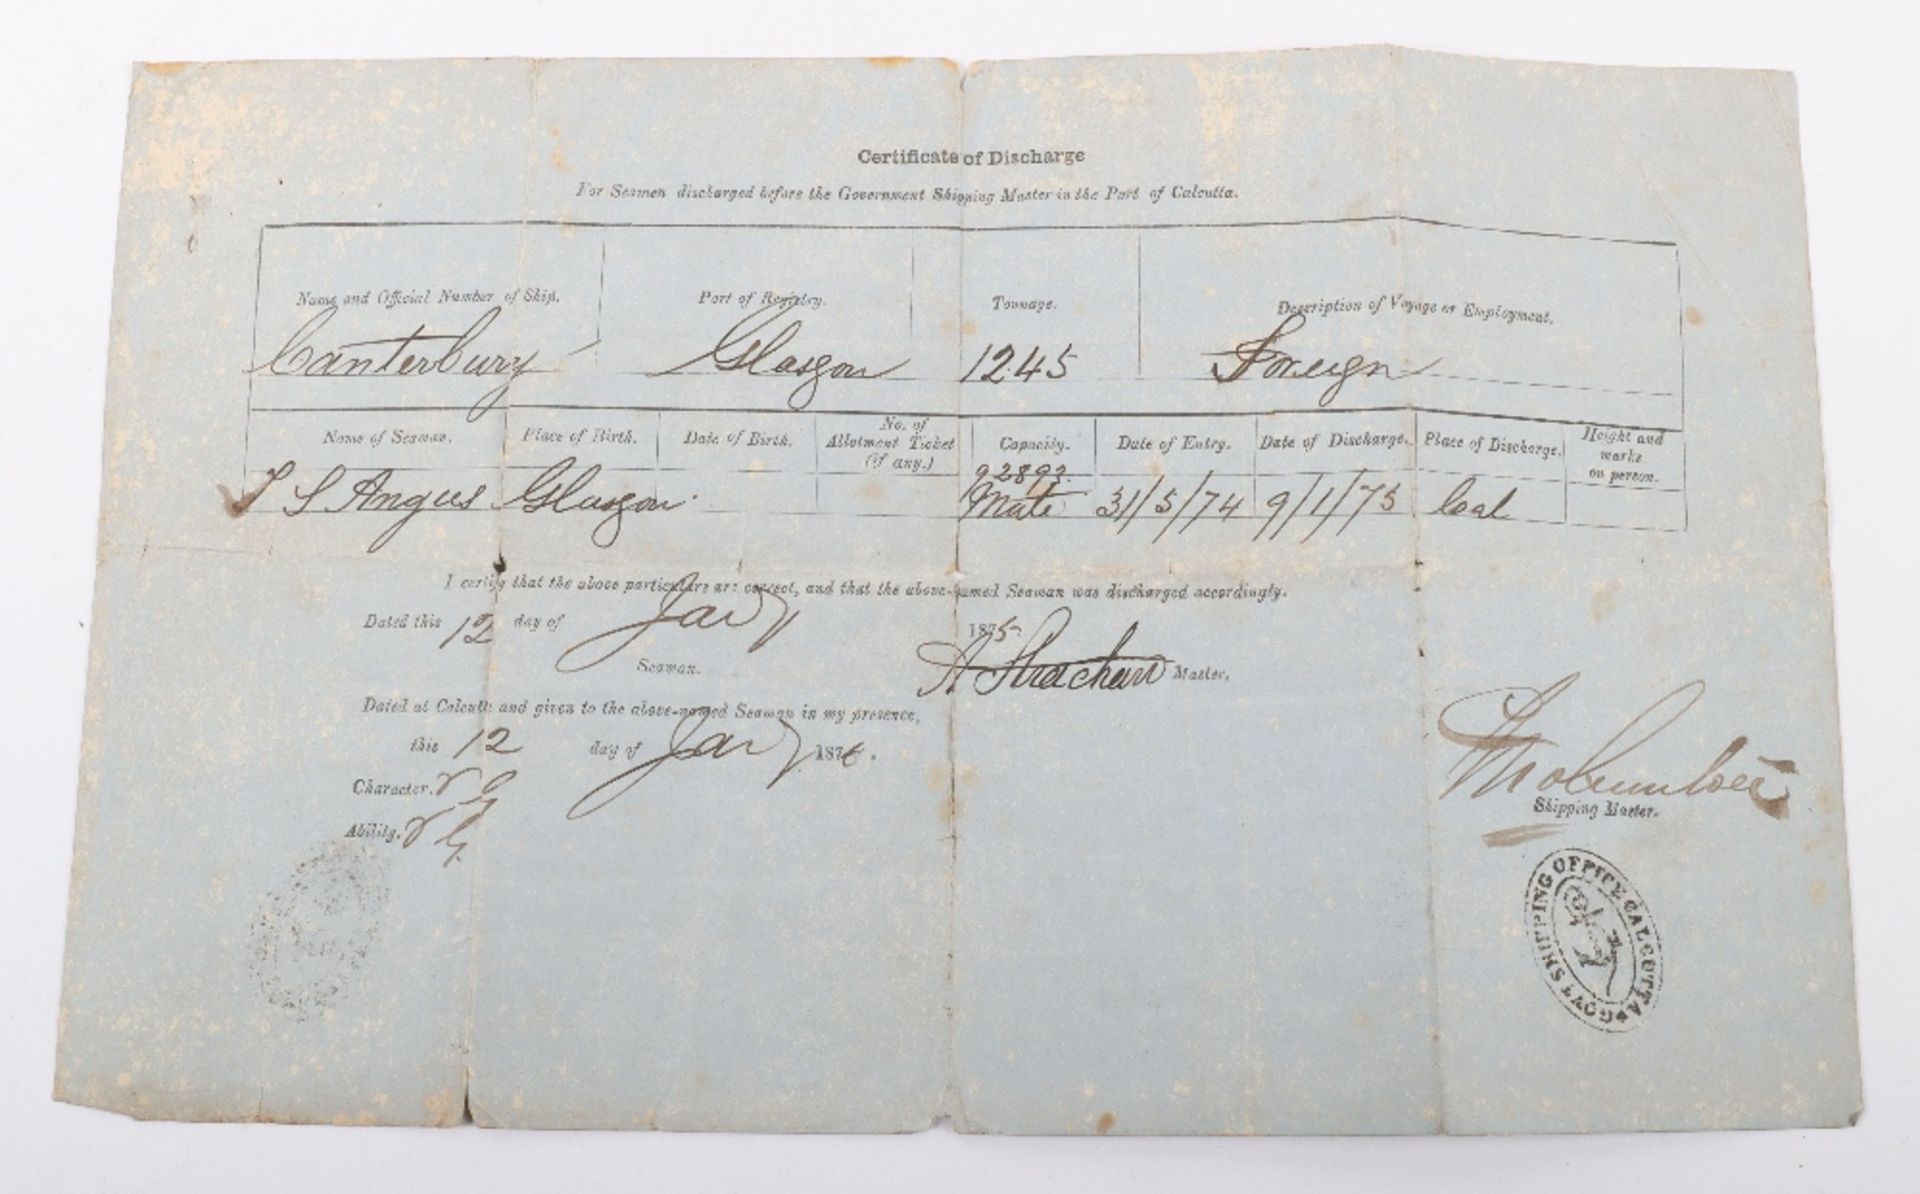 Certificate of Discharge
For Seamen discharged before the Government Shipping Master in the Port of Calcutta.
Name and Official Number of Ship. Port of Registry. Tonnage. Description of Voyage or Employment.
Canterbury Glasgow 1245 Foreign
Name of Seaman. Place of Birth. Date of Birth. No. of Allotment Ticket (if any.) Capacity. Date of Entry. Date of Discharge. Place of Discharge. Height and marks on person.
92893
S Angus Glasgow Mate 31/5/74 9/1/75 Cal
I certify that the above particulars are correct, and that the above-named Seaman was discharged accordingly.
Dated this 12 day of Jany 1875
Seaman. A Strachan Master.
Dated at Calcutta and given to the above-named Seaman in my presence,
this 12 day of Jany 187
Character. V G
Ability. V G.
Shipping Master.
GOVT SHIPPING OFFICE CALCUTTA